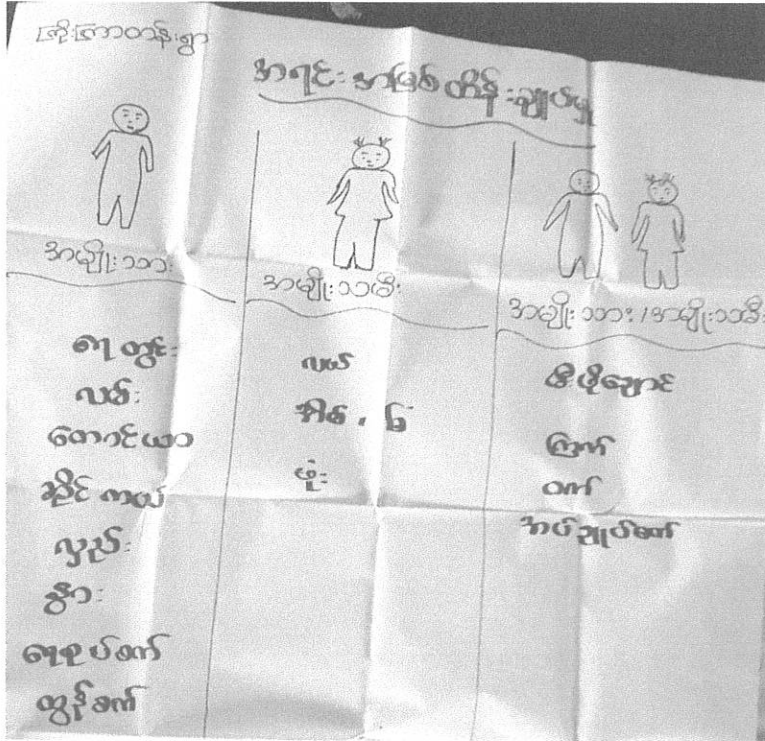 ကြိုးကြာတန်းရွာ
အရင်းအမြစ်ထိန်းချုပ်မှု
အမျိုးသား
ရေတွင်း
လမ်း
တောင်ယာ
ဆိုင်ကယ်
လှည်း
နွား
ရေစုပ်စက်
ထွန်စက်
အမျိုးသမီး
လယ်
အိမ် ၊ ခြံ
ဖုန်း
အမျိုးသား / အမျိုးသမီး
ကြက်
ဝက်
အပ်ချုပ်စက်